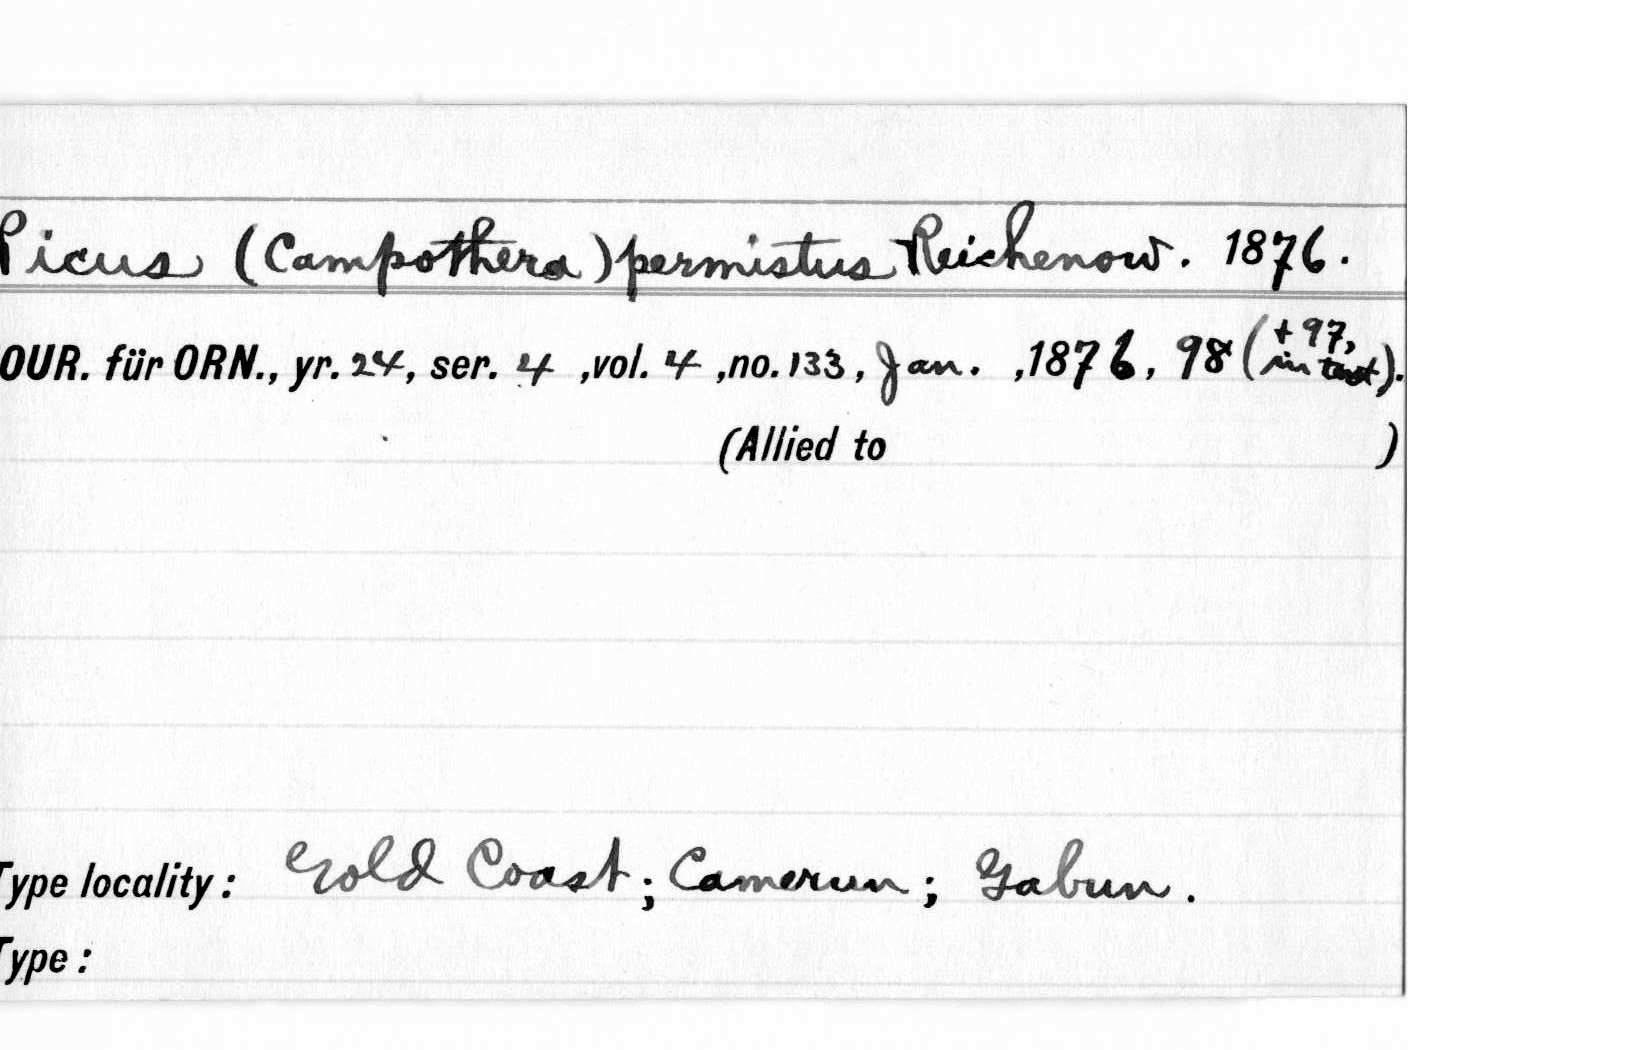 Picus (Campothera) permistus Reichenow. 1876.
OUR. für ORN., yr. 24, ser. 4 ,vol. 4 ,no. 133, Jan. ,1876, 98 (+97, in text).
(Allied to )
Type locality: Gold Coast; Camerun; Gabun.
Type: